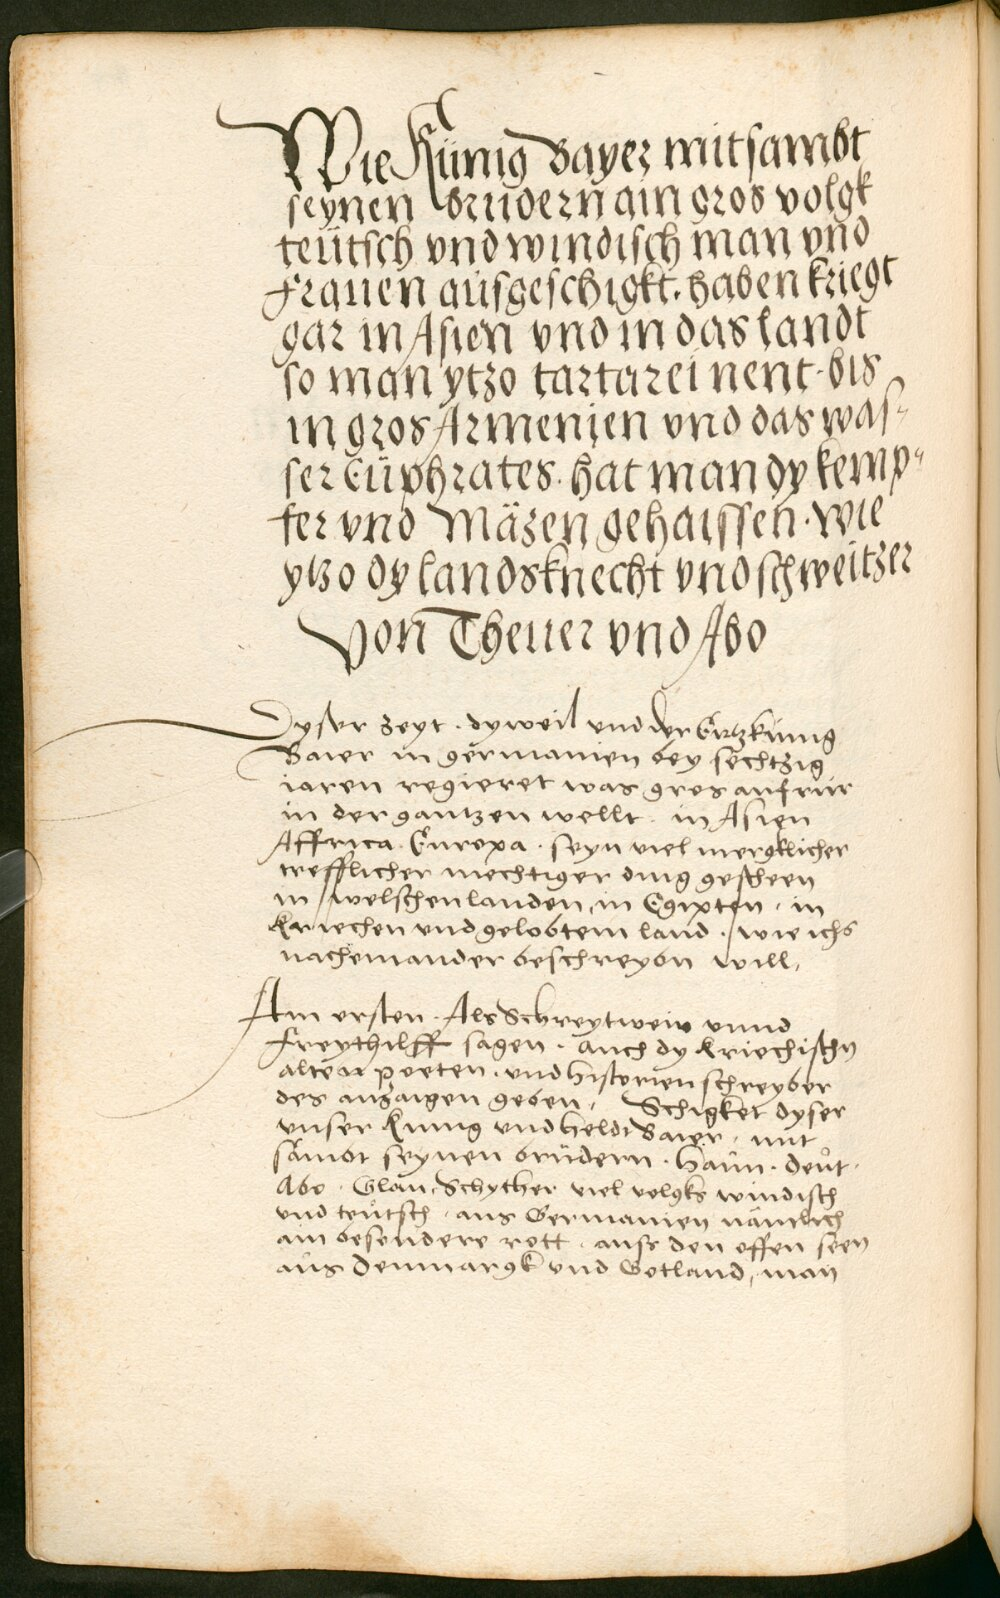 Wie Künig Bayer mitsambt
seynen brüdern ain gros volgk
teütsch vnd windisch man vnd
frauen ausgeschigkt. haben kriegt
gar in Asien vnd in das landt
so man ytzo tartarei nent. bis
in gros Armenien vnd das was-
ser Eüphrates. hat man dy kemp-
fer vnd Mäzen gehaissen. wie
ytzo dy landsknecht vnd schweitzer
Von Theuer vnd Abo
Dyser zeyt. dyweil vnd der Ertzkünig
Baier in germanien bey sechtzig
iaren regieret was gros aufrur
in der gantzen wellt. in Asien
Affrica. Europa. seyn viel mergklicher
trefflicher mechtiger ding gescheen
in welschenlanden, in Egipten. in
Kriechen vnd gelobtem land. wie ichs
nacheinander beschreyben will,
Am ersten. Als Schreytwein vnnd
Freythilff sagen. auch dy kriechischn
alten poeten. vnd historien schreyber
des anzaigen geben, Schigket dyser
vnser künig vnd heldt Baier. mit
sambt seynen brüdern. Haün. Deüt.
Abo. Glan, Schyther viel volgks windisch
vnd teütsch. aus Germanien nämlich
ain besondere rott. auss den offen seen
aus Denmargk vnd Gotland, man